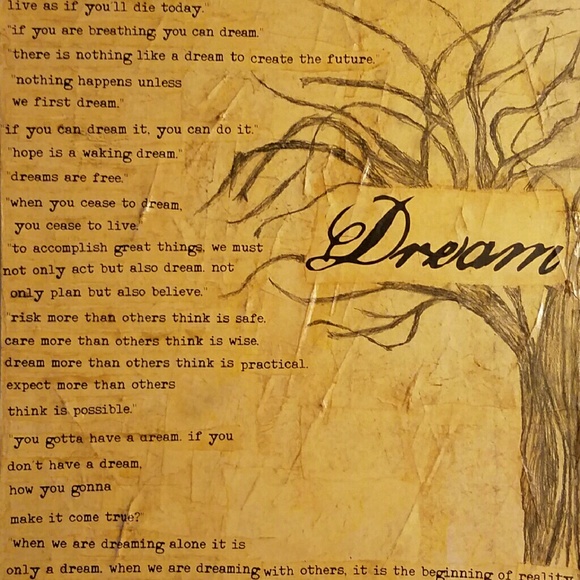 live as if you'll die today."
"if you are breathing you can dream."
"there is nothing like a dream to create the future."
"nothing happens unless
we first dream."
"if you can dream it, you can do it."
"hope is a waking dream."
"dreams are free."
"when you cease to dream,
you cease to live."
"to accomplish great things, we must
not only act but also dream. not
only plan but also believe."
"risk more than others think is safe.
care more than others think is wise.
dream more than others think is practical.
expect more than others
think is possible."
"you gotta have a dream. if you
don't have a dream,
how you gonna
make it come true?"
"when we are dreaming alone it is
only a dream. when we are dreaming with others, it is the beginning of reality
Dream